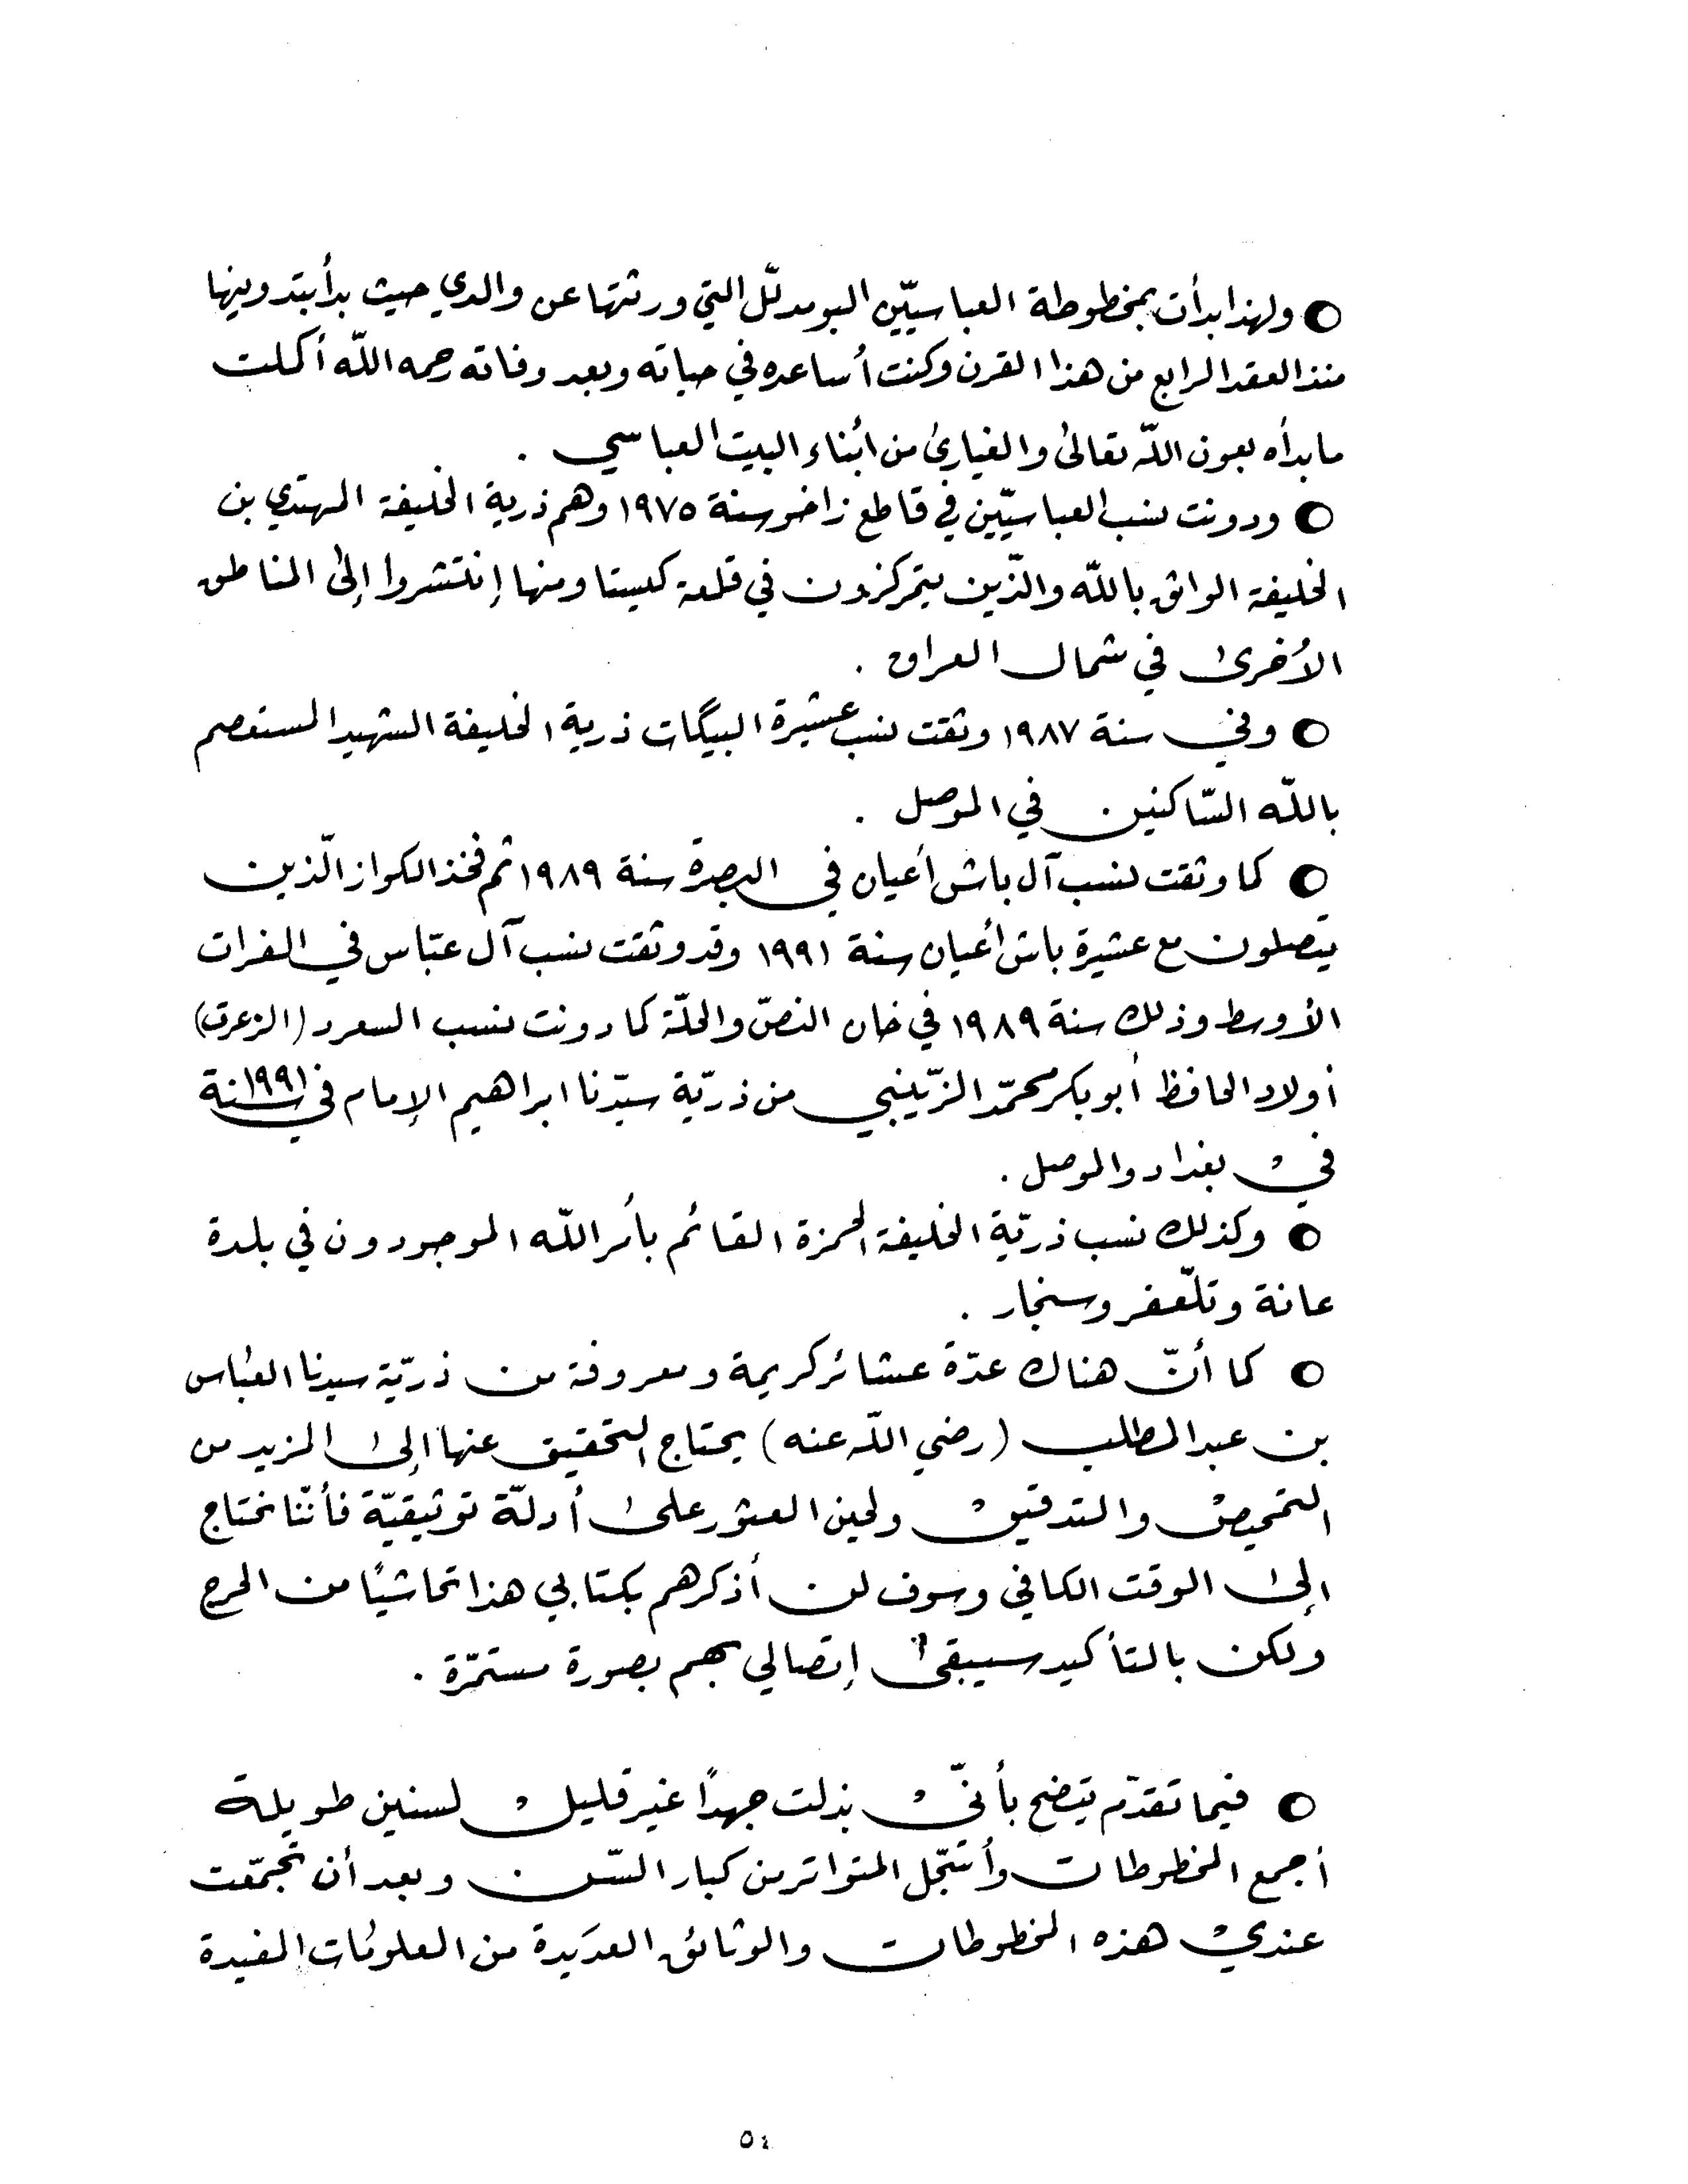 ○ ولهذا بدأت بمخطوطة العباسيّين البومدلّل التي ورثتها عن والدي حيث بدأ بتدوينها
منذ العقد الرابع من هذا القرن وكنت أساعده في حياته وبعد وفاته رحمه اللّه أكملت
مابدأه بعون اللّه تعالى والغيارى من أبناء البيت العباسي .
○ ودونت نسب العباسيّين في قاطع زاخو سنة ١٩٧٥ وهم ذرية الخليفة المهتدي بن
الخليفة الواثق باللّه والذّين يتمركزون في قلعة كيستا ومنها إنتشروا إلى المناطق
الأخرى في شمال العراق .
○ وفي سنة ١٩٨٧ وثقت نسب عشيرة البيگات ذرية الخليفة الشهيد المستعصم
باللّه السّاكنين في الموصل .
○ كما وثقت نسب آل باش أعيان في البصرة سنة ١٩٨٩ ثم فخذ الكواز الّذين
يتصلون مع عشيرة باش أعيان سنة ١٩٩١ وقد وثقت نسب آل عبّاس في الفرات
الأوسط وذلك سنة ١٩٨٩ في خان النصّ والحلّة كما دونت نسب السعرد (الزعرت)
أولاد الحافظ أبو بكر محمّد الزّينبي من ذريّة سيّدنا ابراهيم الإمام في سنة ١٩٩١
في بغداد والموصل .
○ وكذلك نسب ذريّة الخليفة الحمزة القائم بأمر اللّه الموجودون في بلدة
عانة وتلّعفر وسنجار .
○ كما أنّ هناك عدّة عشائر كريمة ومعروفة من ذريّة سيدنا العباس
بن عبد المطلب (رضي اللّه عنه) يحتاج التحقيق عنها إلى المزيد من
التمحيص والتدقيق ولحين العثور على أدلّة توثيقيّة فأنّنا نحتاج
إلى الوقت الكافي وسوف لن أذكرهم بكتابي هذا تحاشيًا من الحرج
ولكن بالتأكيد سيبقى إتصالي بهم بصورة مستمرّة .
○ فيما تقدّم يتضح بأنّي بذلت جهدًا غير قليل لسنين طويلة
أجمع المخطوطات وأسجّل المتواتر من كبار السّن وبعد أن تجمّعت
عندي هذه المخطوطات والوثائق العديدة من المعلومات المفيدة
٥٤